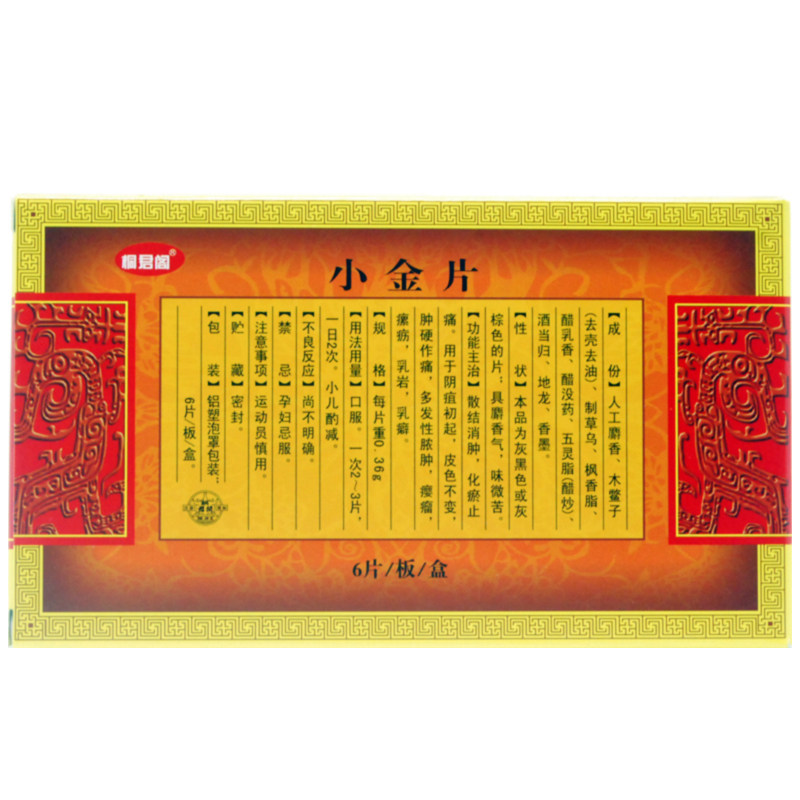 桐君阁®
小金片
【成份】人工麝香、木鳖子
(去壳去油)、制草乌、枫香脂、
醋乳香、醋没药、五灵脂(醋炒)、
酒当归、地龙、香墨。
【性状】本品为灰黑色或灰
棕色的片；具麝香气，味微苦。
【功能主治】散结消肿，化瘀止
痛。用于阴疽初起，皮色不变，
肿硬作痛，多发性脓肿，瘿瘤，
瘰疬，乳岩，乳癖。
【规格】每片重0.36g
【用法用量】口服。一次2~3片，
一日2次。小儿酌减。
【不良反应】尚不明确。
【禁忌】孕妇忌服。
【注意事项】运动员慎用。
【贮藏】密封。
【包装】铝塑泡罩包装；
6片/板/盒。
6片/板/盒